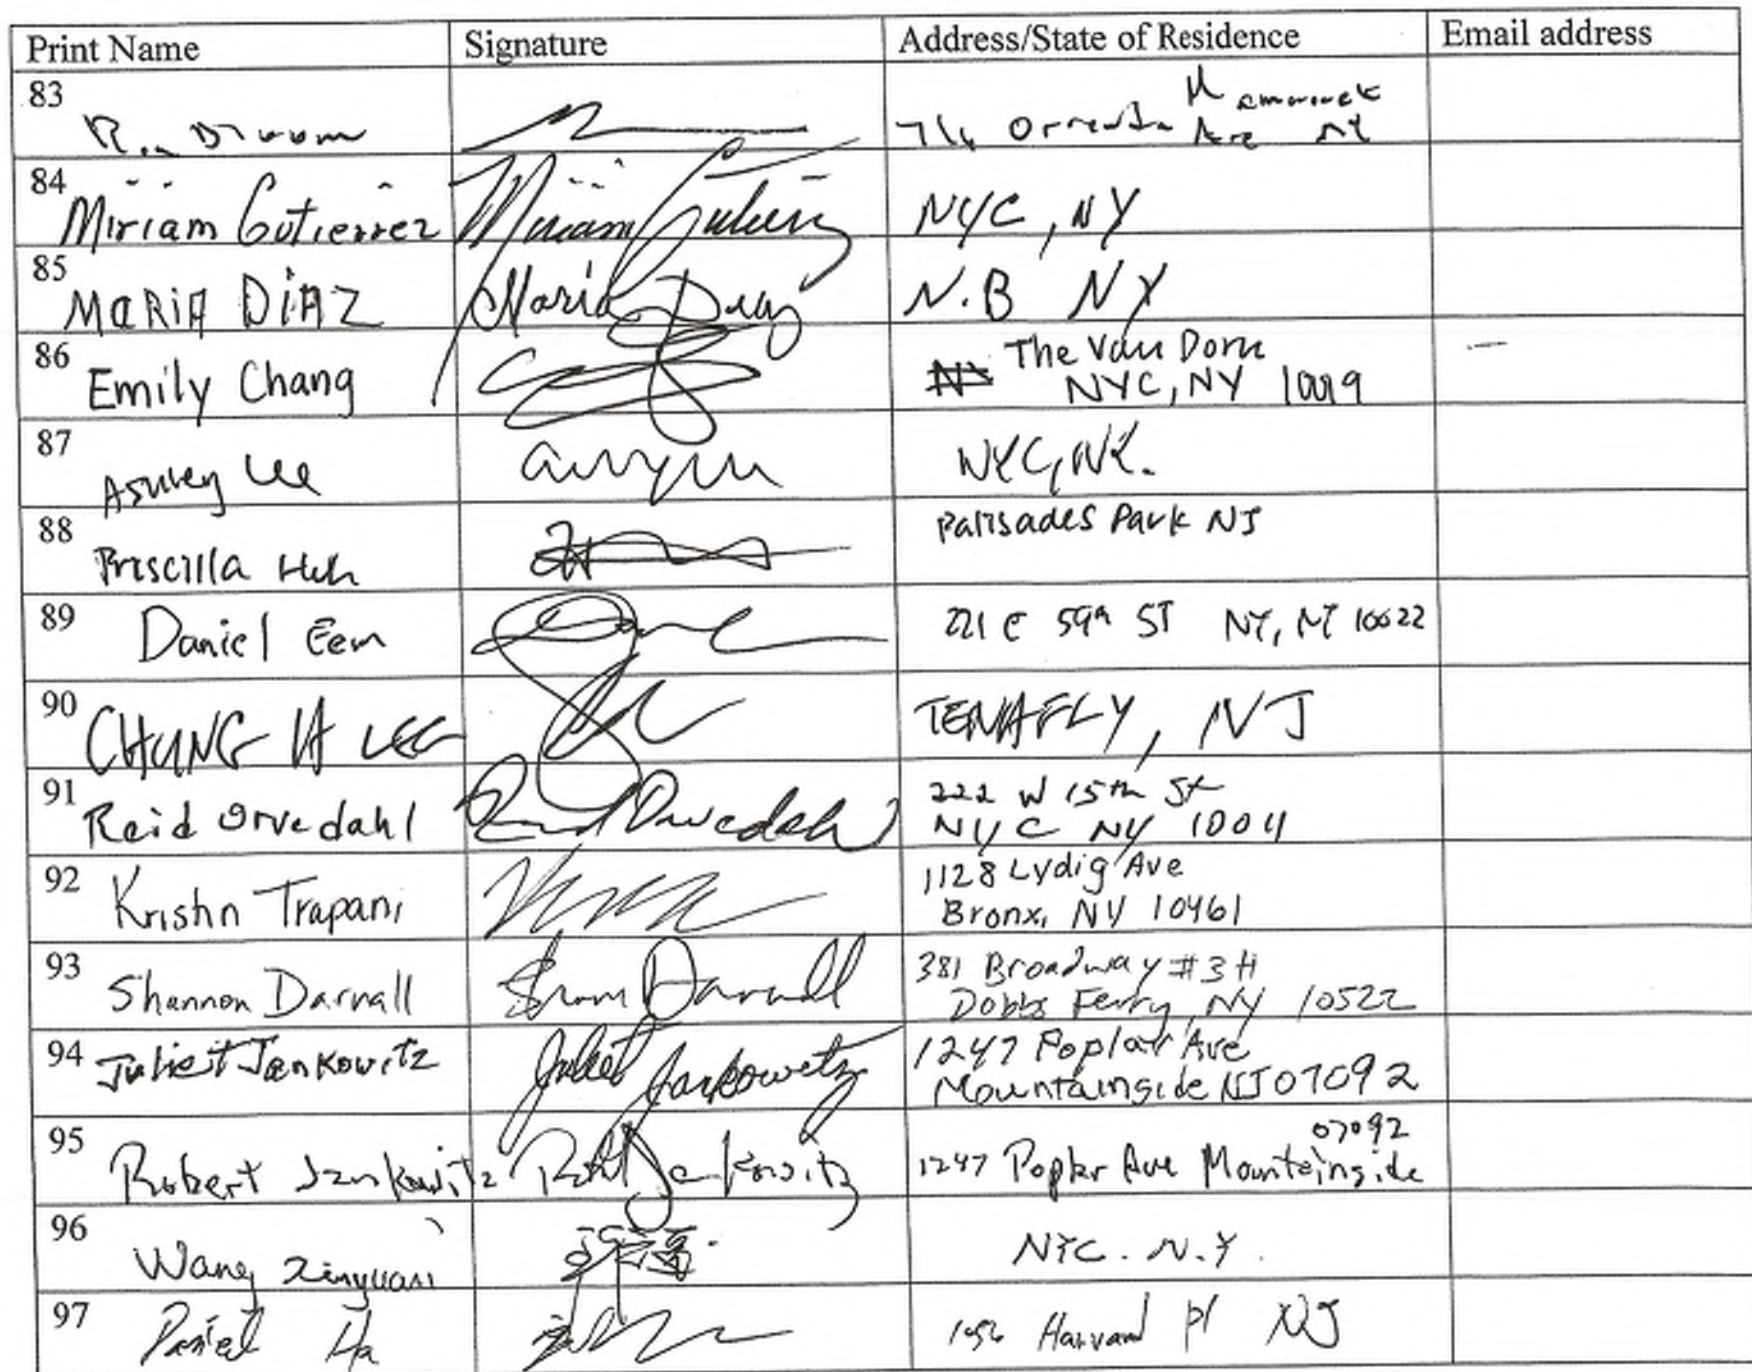 Print Name Signature Address/State of Residence Email address
83
NY
84 Miriam Gutierrez Miriam Gutierrez NYC, NY
85 MARIA DIAZ Maria Diaz N.B NY
86 Emily Chang The Van Dorn
NYC, NY 10019
87 Ashley Lee NYC, NY.
88 Priscilla Huh Palisades Park NJ
89 Daniel Eem 221 E 59th ST NY, NY 10022
90 CHUNG LEE TENAFLY, NJ
91 Reid Orvedahl Reid Orvedahl 222 W 15th St
NYC NY 10011
92 Kristin Trapani 1128 Lydig Ave
Bronx, NY 10461
93 Shannon Darnall Shannon Darnall 381 Broadway #3H
Dobbs Ferry, NY 10522
94 Juliet Jankowitz Juliet Jankowitz 1247 Poplar Ave
Mountainside NJ 07092
95 Robert Jankowitz Robert Jankowitz 1247 Poplar Ave Mountainside
07092
96 Wang Xinyuan NYC. N.Y.
97 Daniel Ha Harvard Pl NJ